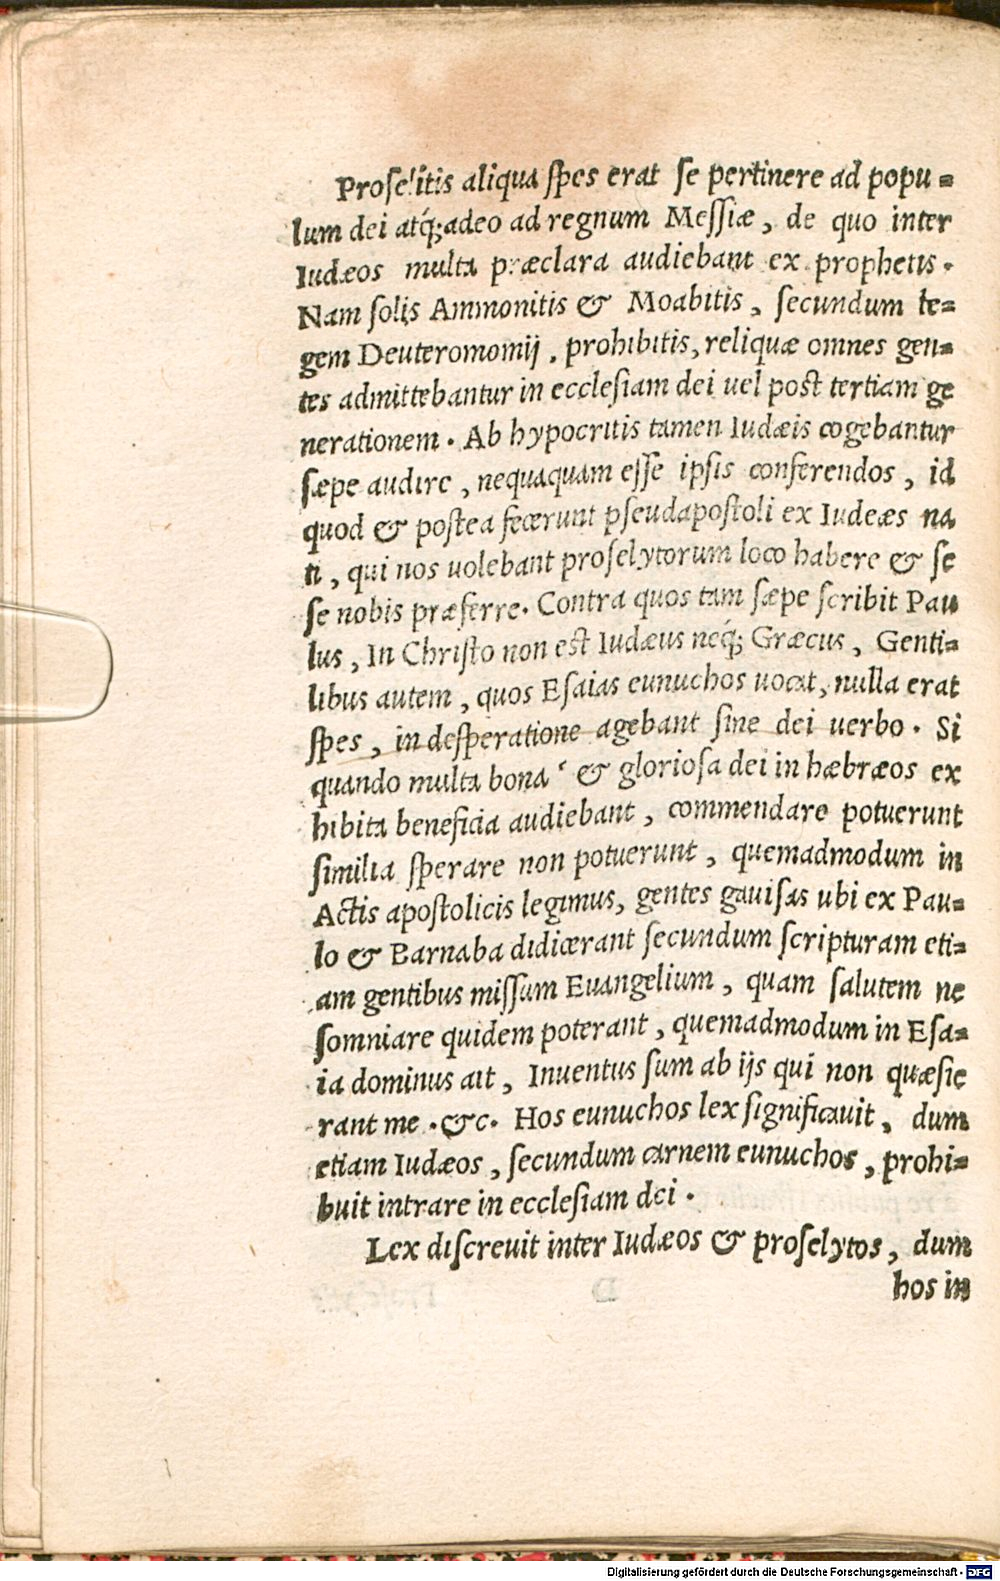 Proselitis aliqua spes erat se pertinere ad popu=
lum dei atq́;adeo ad regnum Messiæ, de quo inter
Iudæos multa præclara audiebant ex prophetis.
Nam solis Ammonitis & Moabitis, secundum le=
gem Deuteromomij, prohibitis, reliquæ omnes gen=
tes admittebantur in ecclesiam dei uel post tertiam ge
nerationem. Ab hypocritis tamen Iudæis cogebantur
sæpe audire, nequaquam esse ipsis conferendos, id
quod & postea fecerunt pseudapostoli ex Iudeæs na
ti, qui nos uolebant proselytorum loco habere & se
se nobis præferre. Contra quos tam sæpe scribit Pau
lus, In Christo non est Iudæus neq́; Græcus, Genti=
libus autem, quos Esaias eunuchos uocat, nulla erat
spes, in desperatione agebant sine dei uerbo. Si
quando multa bona & gloriosa dei in hæbræos ex
hibita beneficia audiebant, commendare potuerunt
similia sperare non potuerunt, quemadmodum in
Actis apostolicis legimus, gentes gauisas ubi ex Pau=
lo & Barnaba didicerant secundum scripturam eti=
am gentibus missum Euangelium, quam salutem ne
somniare quidem poterant, quemadmodum in Esa=
ia dominus ait, Inuentus sum ab ijs qui non quæsie
rant me .&c. Hos eunuchos lex significauit, dum
etiam Iudæos, secundum carnem eunuchos, prohi=
buit intrare in ecclesiam dei.
Lex discreuit inter Iudæos & proselytos, dum
hos in
Digitalisierung gefördert durch die Deutsche Forschungsgemeinschaft - DFG